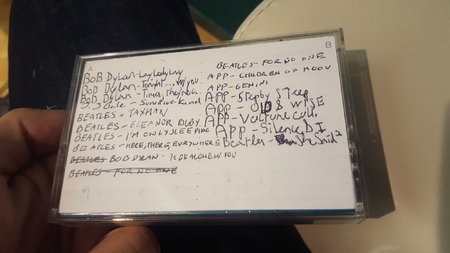 A
BOB Dylan - Lay Lady Lay
Bob Dylan - Tonight... you
Bob Dylan - Times, they
BEATLES - TAXMAN
BEATLES - ELEANOR RIGBY
BEATLES - I'M ONLY SLEEPING
BEATLES - HERE, THERE, EVERYWHERE
BEATLES BOB DYLAN - TO BE ALONE W YOU
BEATLES - FOR NO ONE
B
BEATLES - FOR NO ONE
APP - CHILDREN OF MOON
APP - GEMINI
APP - Step by STep
APP - OLD & WISE
APP - Vulture Cult.
APP - Silence, D I
Beatles